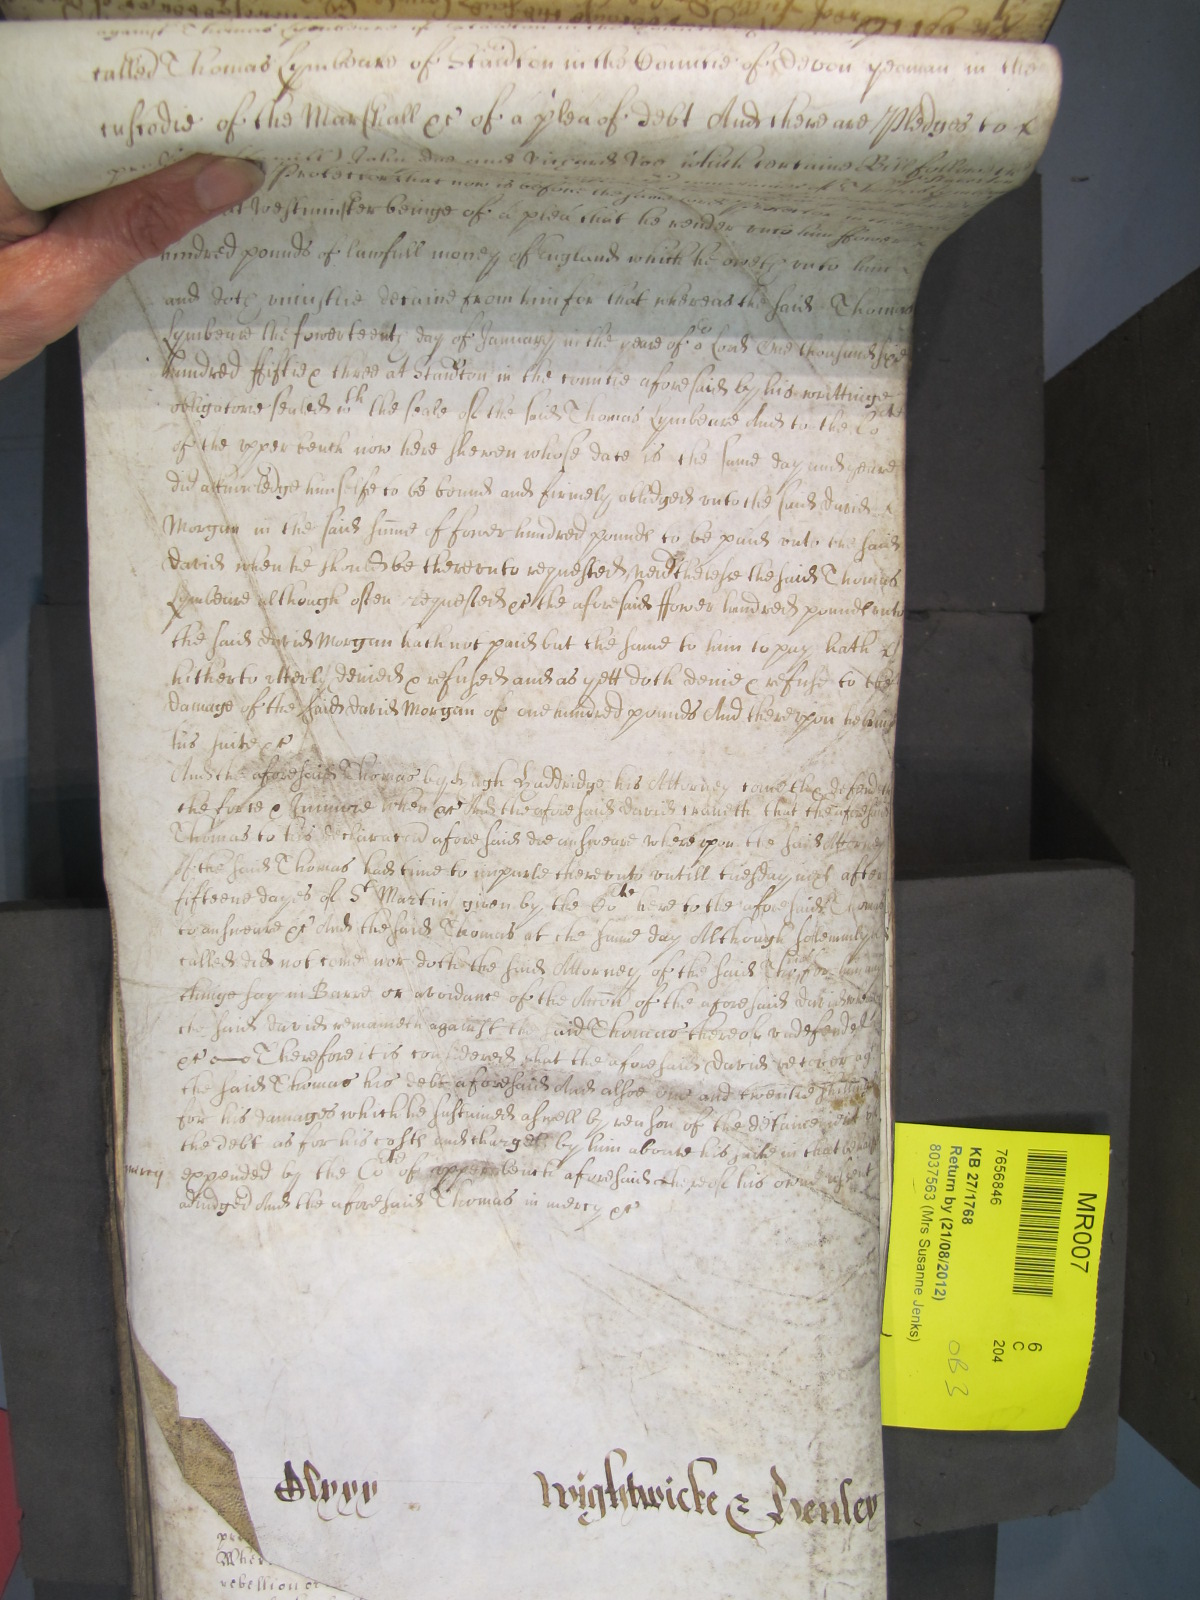 called Thomas Lymbeare of Staunton in the Countie of Devon yeoman in the
custodie of the Marshall &c of a plea of debt And there are Pledges to
John Doe and Richard Roe which certaine Bill followeth
Protector that now is before the same
at Westminster beinge of a plea that he render unto him fower
hundred pounds of lawfull money of England which he oweth unto him
and doth uniustlie detaine from him for that whereas the said Thomas
Lymbeare the fowerteenth day of January in the yeare of or Lord One thousand six
hundred fiftie & three at Staunton in the countie aforesaid by his writtinge
obligatorie sealed wth the seale of the said Thomas Lymbeare And to the Co
of the upper bench now here shewen whose date is the same day and yeare
did acknowledge himselfe to be bound and firmely obliged unto the said David
Morgan in the said summe of fower hundred pounds to be paid unto the said
David when he should be thereunto requested, the said Thomas
Lymbeare although often requested &c the aforesaid ffower hundred pounds unto
the said David Morgan hath not paid but the same to him to pay hath
hitherto utterly denied & refused and as yett doth denie & refuse to the
damage of the said David Morgan of one hundred pounds And thereupon he brings
his suite &c
And the aforesaid Thomas by Hugh Baddridge his Attorney cometh & defendeth
the force & Iniurie when &c And the aforesaid David craveth that the aforesaid
Thomas to his declaracon aforesaid doe answeare whereupon the said Attorney
of the said Thomas had time to imparle thereunto untill tuesday next after
fifteene dayes of St Martin given by the Co here to the aforesaid Thomas
to answeare &c And the said Thomas at the same day Although solemnly
called did not come nor doth the said Attorney of the said Thomas
thinge say in Barre or avoidance of the Accon of the aforesaid David
the said David remaineth against the said Thomas thereof undefended
&c Therefore it is considered that the aforesaid David recover agt
the said Thomas his debt aforesaid And alsoe One and twentie shillings
for his damages which he sustained aswell by reason of the detaineing of
the debt as for his costs and charges by him aboute his suite in that behalf
mercy
expended by the Cote of upper bench aforesaid there of his owne assent
adiudged And the aforesaid Thomas in mercy &c
Wightwicke & Henley
rebellion
MR007
7656846
KB 27/1768
Return by (21/08/2012)
8037563 (Mrs Susanne Jenks)
6
C
204